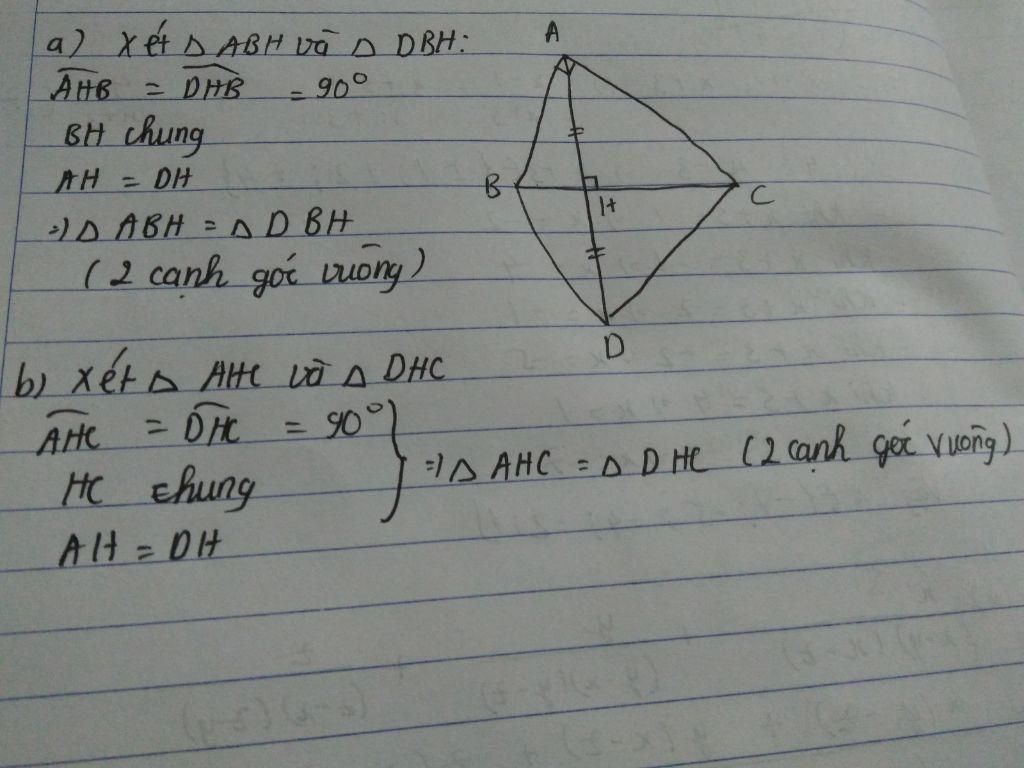 a) Xét △ ABH và △ DBH:
AHB = DHB = 90°
BH chung
AH = DH
=) △ ABH = △ DBH
(2 cạnh góc vuông)
A
B
H
C
D
b) Xét △ AHC và △ DHC
AHC = DHC = 90°
HC chung
AH = DH
=) △ AHC = △ DHC (2 cạnh góc vuông)